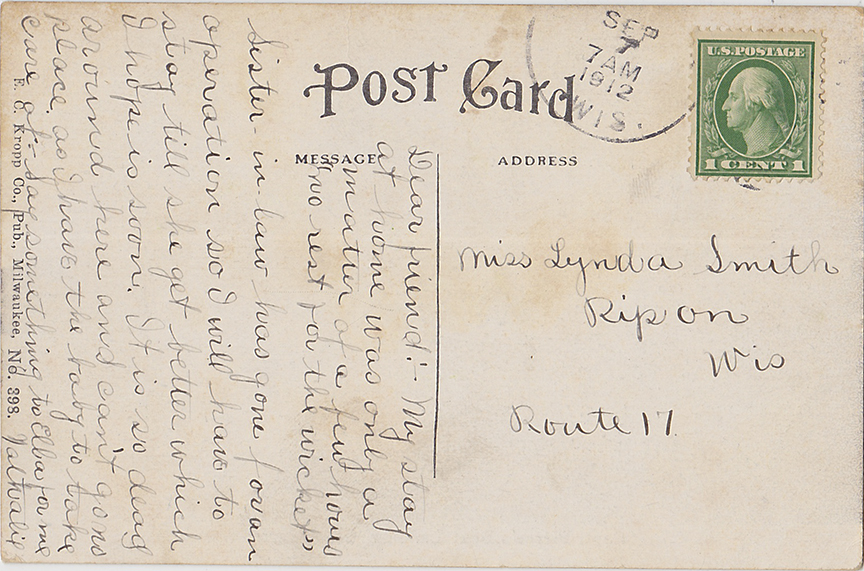 Post Card
MESSAGE
ADDRESS
SEP
7
7 AM
1912
WIS.
U.S. POSTAGE
1 CENT 1
Miss Lynda Smith
Ripon
Wis
Route 17.
Dear friend:- My stay
at home was only a
matter of a few hours
"no rest for the wicket"
Sister-in-law has gone for an
operation so I will have to
stay till she get better which
I hope is soon. It is so dead
around here and can't go no
place, as I have the baby to take
care of:- Say something to Elba for me
E. C. Kropp Co., Pub., Milwaukee, No. 898.